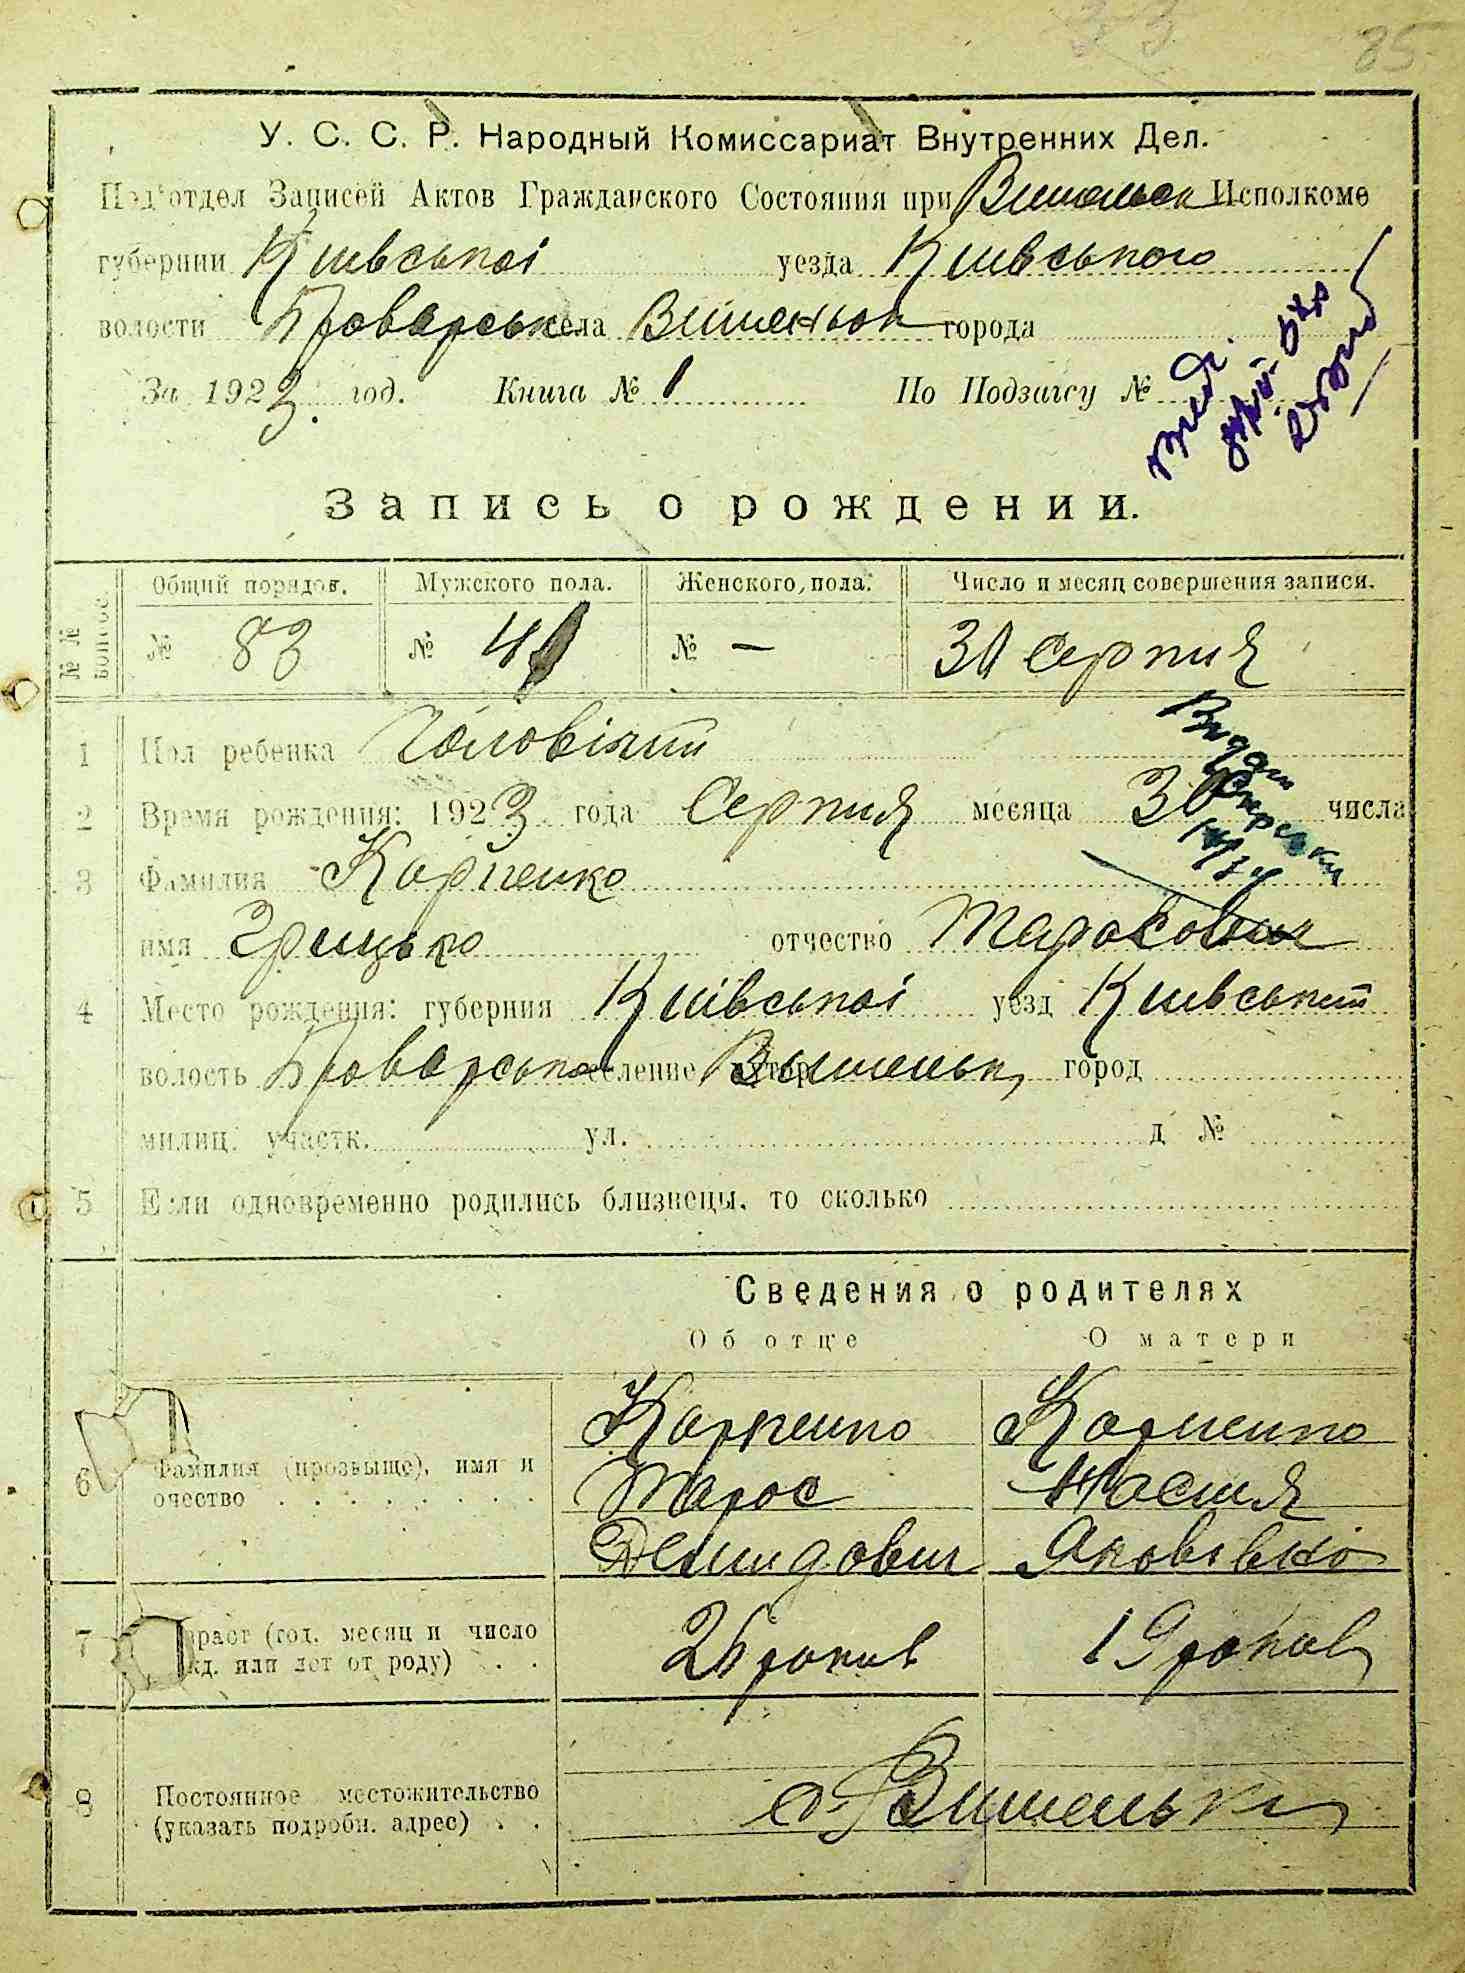 35
У. С. С. Р. Народный Комиссариат Внутренних Дел.
Под'отдел Записей Актов Гражданского Состояния при Вишеньск Исполкоме
губернии Київської уезда Київського
волости Броварськ села Вишеньок города
За 1923. год. Книга № 1 По Подзагсу №
Запись о рождении.
№ № вопрос. Общий порядов. Мужского пола. Женского пола. Число и месяц совершения записи.
№ 83 № 41 № — 30 Серпня
1 Пол ребенка Чоловічий
2 Время рождения: 1923 года Серпня месяца 30 числа
3 Фамилия Карпенко
имя Грицько отчество Тарасович
4 Место рождения: губерния Київської уезд Київський
волость Броварська селение хутор Вишеньки город
милиц. участк. ул. д №
5 Если одновременно родились близнецы, то сколько
Сведения о родителях
Об отце О матери
Карпенко Карпенко
6 Фамилия (прозвыще), имя и Тарас Настя
очество Демидович Яковівна
7 враст (год, месяц и число 25 років 19 років
жд. или лет от роду)
8 Постоянное местожительство с. Вишеньки
(указать подробн. адрес)